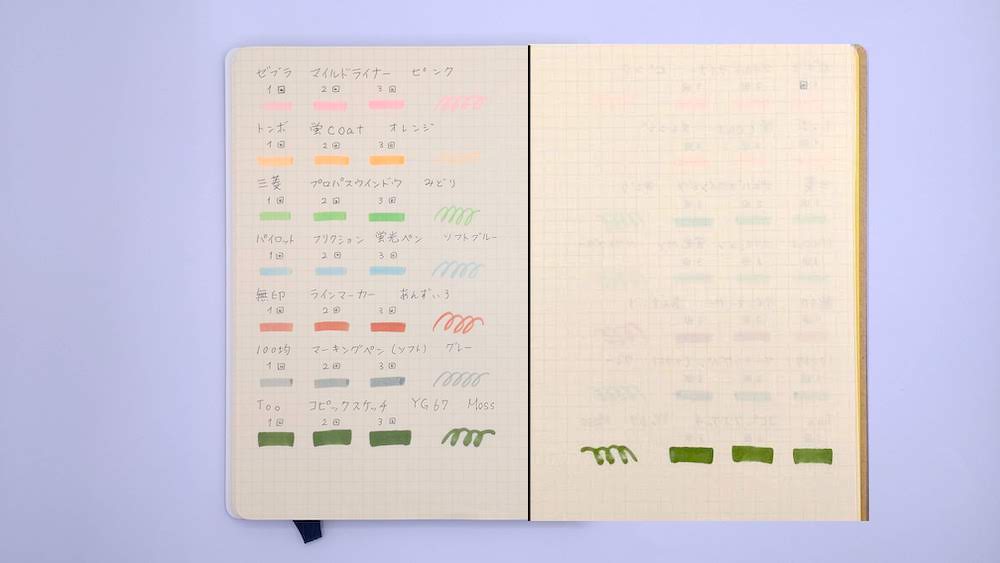 ゼブラ マイルドライナー ピンク
1回 2回 3回
トンボ 蛍coat オレンジ
1回 2回 3回
三菱 プロパスウインドウ みどり
1回 2回 3回
パイロット フリクション 蛍光ペン ソフトブルー
1回 2回 3回
無印 ラインマーカー あんずいろ
1回 2回 3回
100均 マーキングペン(ソフト) グレー
1回 2回 3回
Too コピックスケッチ YG67 Moss
1回 2回 3回